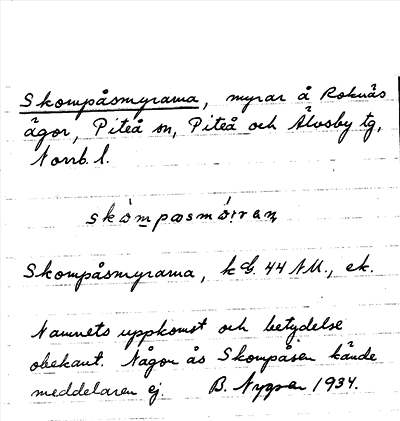 Skompåsmyrarna, myrar å Roknäs
ägor, Piteå sn, Piteå och Älvsby tg,
Norrb. l.
Skompåsmyrarna, k G. 44 NU., ek.
Namnets uppkomst och betydelse
obekant. Någon ås Skompåsen kände
meddelaren ej. B. Nygren 1934.